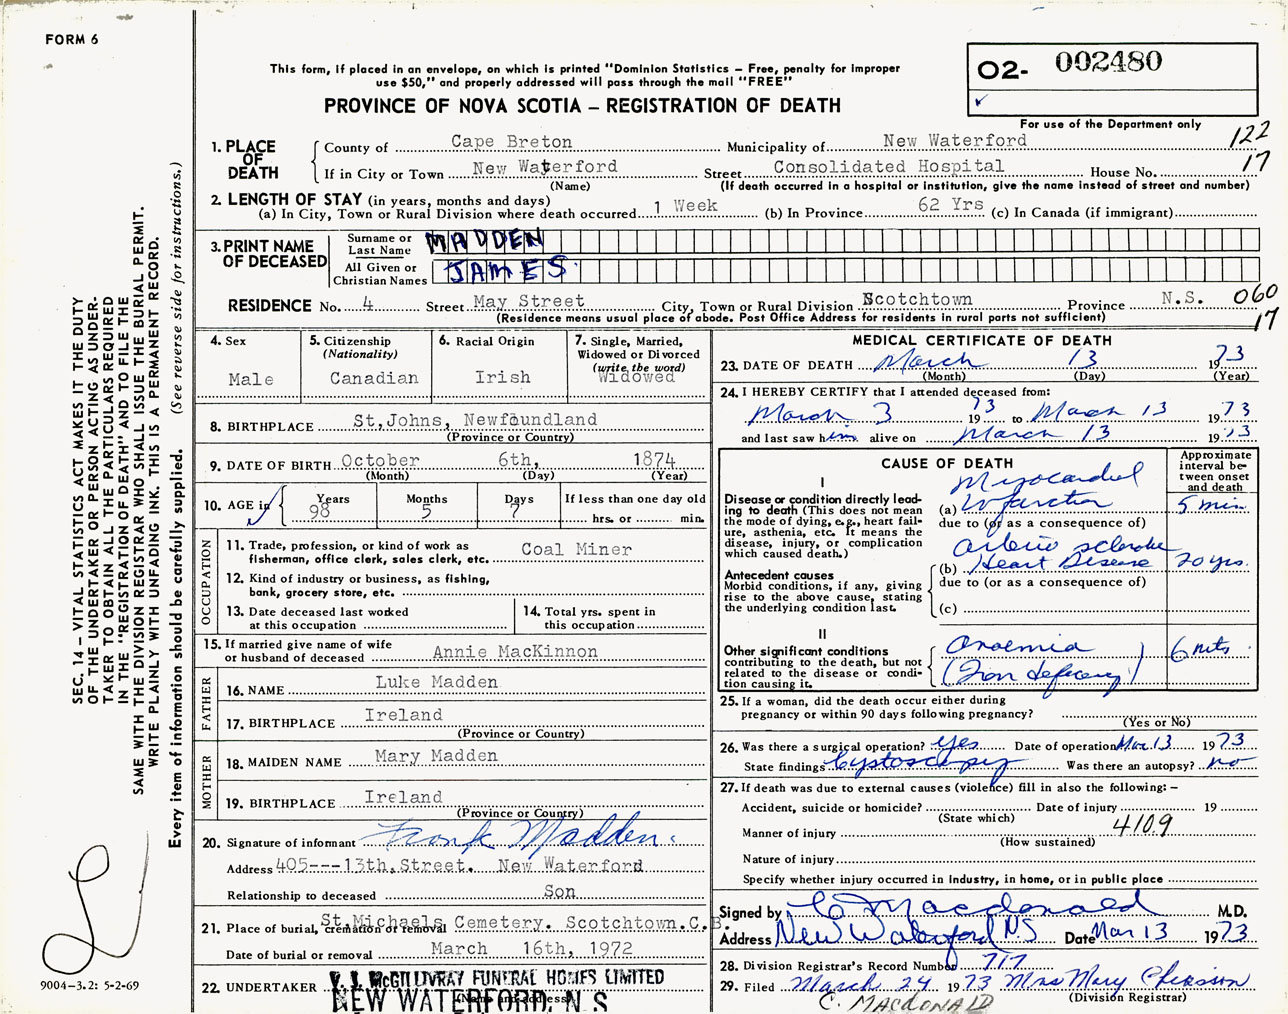 FORM 6
This form, if placed in an envelope, on which is printed "Dominion Statistics – Free, penalty for improper
use $50," and properly addressed will pass through the mail "FREE"
PROVINCE OF NOVA SCOTIA – REGISTRATION OF DEATH
02- 002480
✓
For use of the Department only
122
17
1. PLACE OF DEATH
County of Cape Breton Municipality of New Waterford
If in City or Town New Waterford Street Consolidated Hospital House No.
(Name) (If death occurred in a hospital or institution, give the name instead of street and number)
2. LENGTH OF STAY (in years, months and days)
(a) In City, Town or Rural Division where death occurred 1 Week (b) In Province 62 Yrs (c) In Canada (if immigrant)
3. PRINT NAME OF DECEASED
Surname or Last Name MADDEN
All Given or Christian Names JAMES
RESIDENCE No. 4 Street May Street City, Town or Rural Division Scotchtown Province N.S. 060
(Residence means usual place of abode. Post Office Address for residents in rural parts not sufficient) 17
SEC. 14 – VITAL STATISTICS ACT MAKES IT THE DUTY
OF THE UNDERTAKER OR PERSON ACTING AS UNDER-
TAKER TO OBTAIN ALL THE PARTICULARS REQUIRED
IN THE "REGISTRATION OF DEATH" AND TO FILE THE
SAME WITH THE DIVISION REGISTRAR WHO SHALL ISSUE THE BURIAL PERMIT.
WRITE PLAINLY WITH UNFADING INK. THIS IS A PERMANENT RECORD.
Every item of information should be carefully supplied. (See reverse side for instructions.)
4. Sex
Male
5. Citizenship
(Nationality)
Canadian
6. Racial Origin
Irish
7. Single, Married,
Widowed or Divorced
(write the word)
Widowed
8. BIRTHPLACE St,Johns, Newfoundland
(Province or Country)
9. DATE OF BIRTH October 6th, 1874
(Month) (Day) (Year)
10. AGE in Years Months Days If less than one day old
98 5 7 hrs. or min.
OCCUPATION
11. Trade, profession, or kind of work as
fisherman, office clerk, sales clerk, etc. Coal Miner
12. Kind of industry or business, as fishing,
bank, grocery store, etc.
13. Date deceased last worked
at this occupation
14. Total yrs. spent in
this occupation
15. If married give name of wife
or husband of deceased Annie MacKinnon
FATHER
16. NAME Luke Madden
17. BIRTHPLACE Ireland
(Province or Country)
MOTHER
18. MAIDEN NAME Mary Madden
19. BIRTHPLACE Ireland
(Province or Country)
20. Signature of informant Frank Madden
Address 405---13th,Street. New Waterford
Relationship to deceased Son
21. Place of burial, cremation or removal St.Michaels Cemetery. Scotchtown.C.B.
Date of burial or removal March 16th, 1972
22. UNDERTAKER V. J. McGILLIVRAY FUNERAL HOMES LIMITED
(Name and address)
NEW WATERFORD, N.S
9004–3.2: 5-2-69
MEDICAL CERTIFICATE OF DEATH
23. DATE OF DEATH March 13 1973
(Month) (Day) (Year)
24. I HEREBY CERTIFY that I attended deceased from:
March 3 1973 to March 13 1973
and last saw him alive on March 13 1973
CAUSE OF DEATH
Approximate
interval be-
tween onset
and death
I
Disease or condition directly lead-
ing to death (This does not mean
the mode of dying, e.g., heart fail-
ure, asthenia, etc. It means the
disease, injury, or complication
which caused death.)
Myocardial
(a) Infarction 5 min.
due to (or as a consequence of)
Antecedent causes
Morbid conditions, if any, giving
rise to the above cause, stating
the underlying condition last.
Arterio sclerotic
(b) Heart Disease 20 yrs.
due to (or as a consequence of)
(c)
II
Other significant conditions
contributing to the death, but not
related to the disease or condi-
tion causing it.
Anaemia 6 mts.
(Iron deficiency)
25. If a woman, did the death occur either during
pregnancy or within 90 days following pregnancy?
(Yes or No)
26. Was there a surgical operation? Yes Date of operation Mar 13 1973
State findings Cystoscopy Was there an autopsy? no
27. If death was due to external causes (violence) fill in also the following: –
Accident, suicide or homicide? Date of injury 19
(State which)
Manner of injury 410.9
(How sustained)
Nature of injury
Specify whether injury occurred in industry, in home, or in public place
Signed by C Macdonald M.D.
Address New Waterford NS Date Mar 13 1973
28. Division Registrar's Record Number 717
29. Filed March 24 1973 Mrs Mary
(Division Registrar)
C. MACDONALD